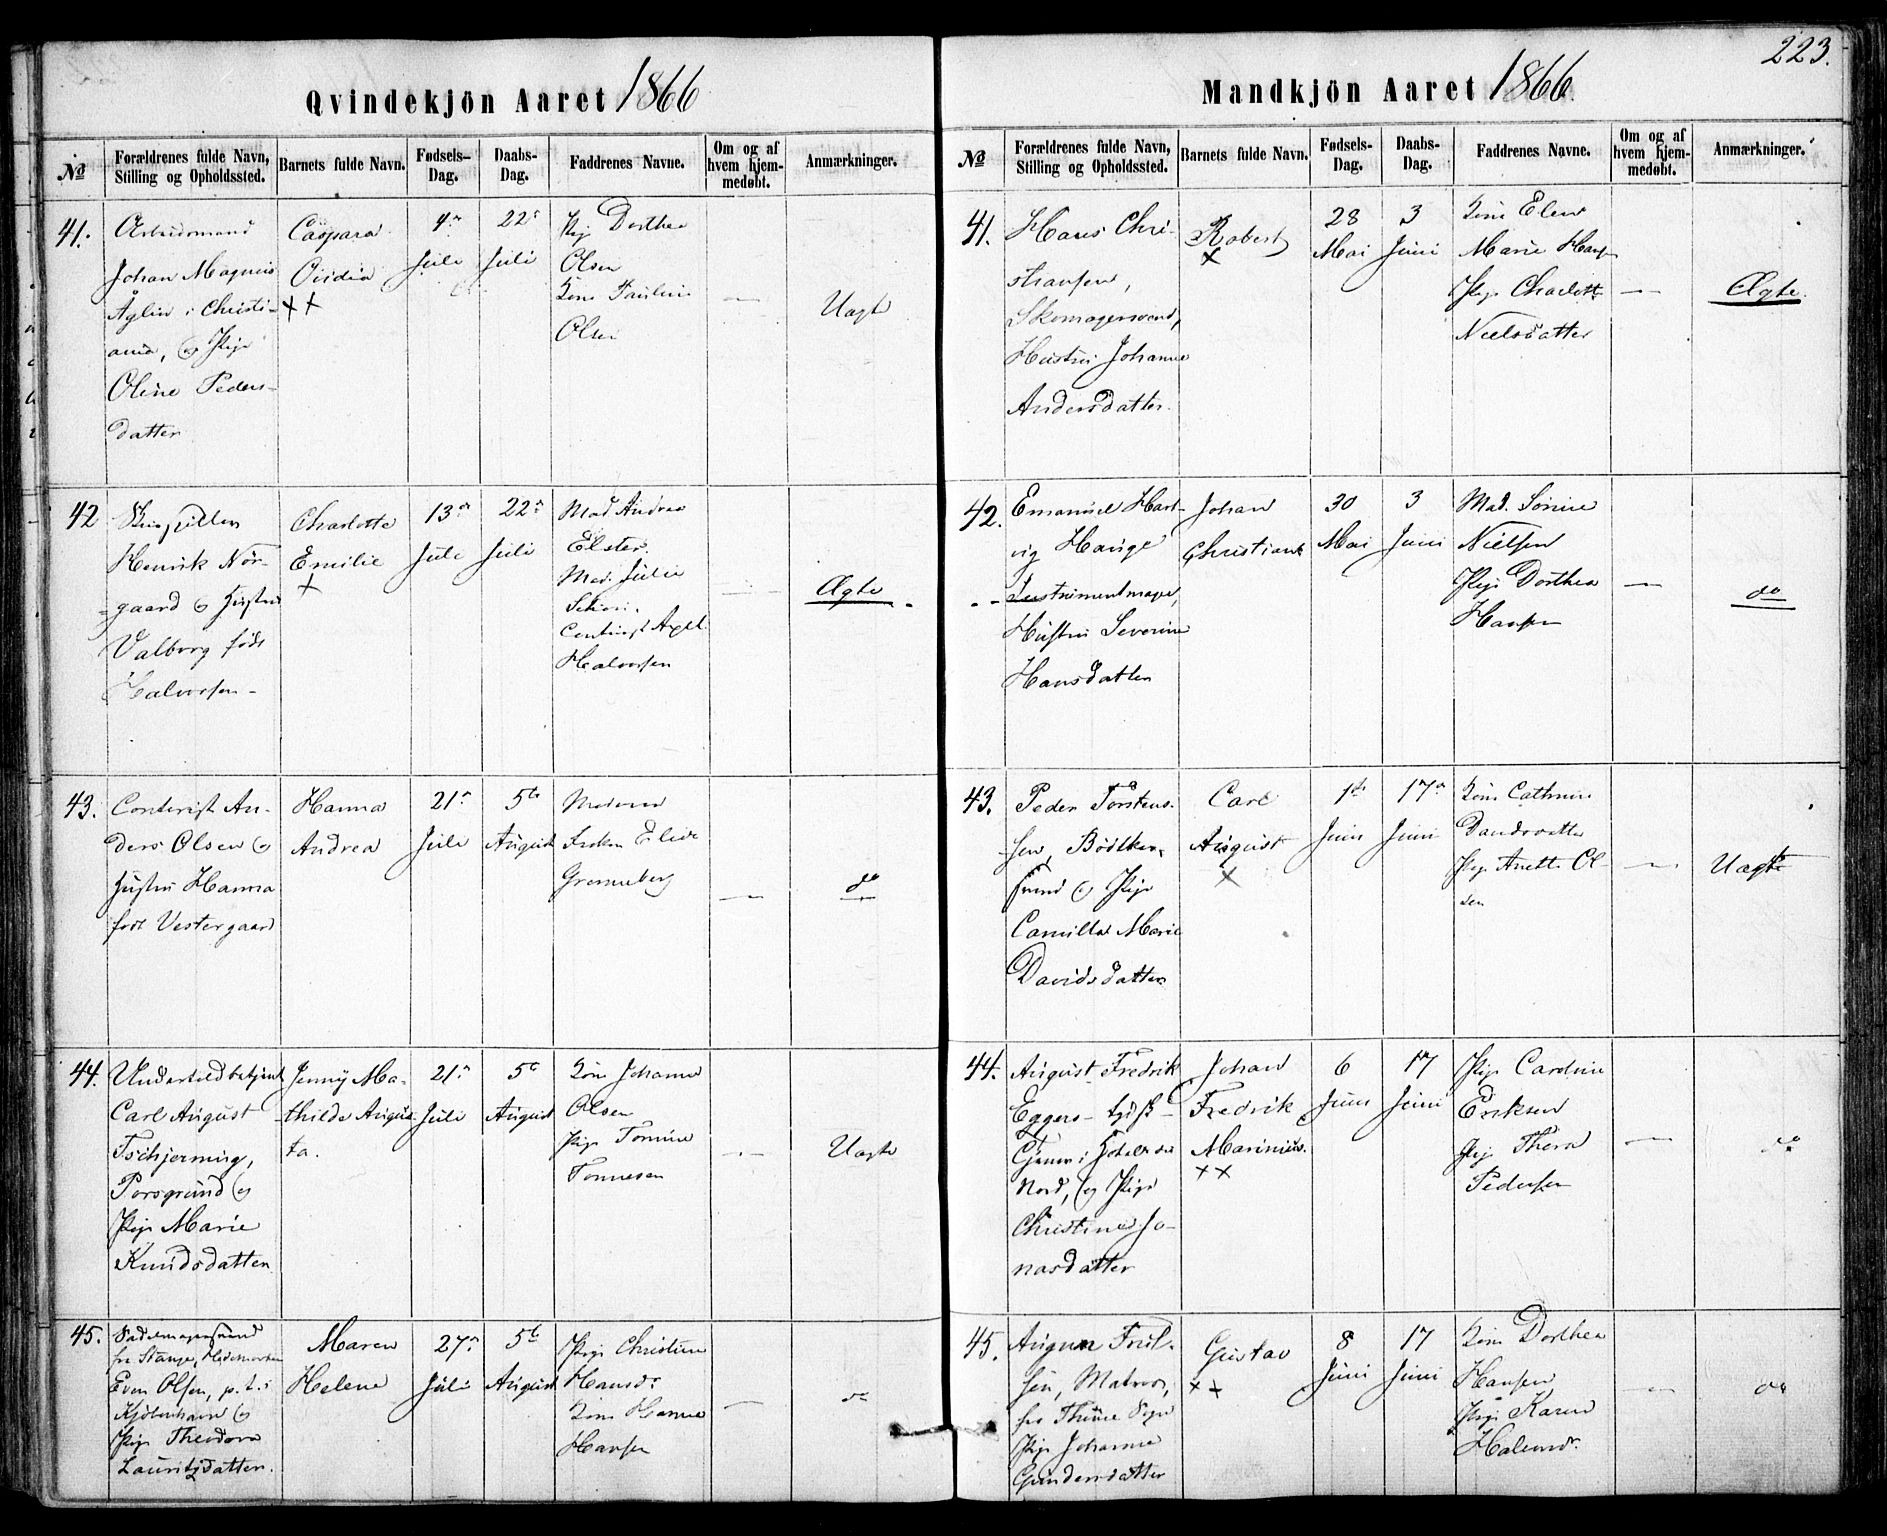 223.
Qvindekjön Aaret 1866
No
Forældrenes fulde Navn, Stilling og Opholdssted.
Barnets fulde Navn.
Fødsels-Dag.
Daabs-Dag.
Faddrenes Navne.
Om og af hvem hjem-medøbt.
Anmærkninger.
41.
Arbeidsmand
Johan Magnus
i Christi-
ania, og Pige
Oline Peders-
datter
Caspara
Ovidia
++
4de
Juli
22de
Juli
Pig Dorthea
Olsen
Kone Pauline
Olsen
—
Uægte
42
Henrik Nor-
gaard og Hustru
Valborg født
Halvorsen
Charlotte
Emilie
+
13de
Juli
22de
Juli
Mad Andrea
Elster.
Mad. Julie
Contorist Axel
Halvorsen
—
Ægte
43.
Contorist An-
ders Olsen og
Hustru Hanna
født Vestergaard
Hanna
Andrea
21de
Juli
5te
August
Frøken Elise
Grønneberg
—
do
44.
Undertoldbetjent
Carl August
Tschjerming,
Porsgrund og
Pige Marie
Knudsdatter
Jenny Ma-
thilde Augus-
ta.
21de
Juli
5te
August
Kone Johanne
Olsen
Pige Tomine
Tonnesen
—
Uægte
45.
Sadelmagersvend
fra Stange, Hedemarken
Even Olsen, p.t. i
Kjöbenhavn og
Pige Theodora
Lauritzdatter.
Maren
Helene
27de
Juli
5te
August
Pige Christine
Hansdr
Kone Hanne
Hansen
—
do
Mandkjön Aaret 1866
No
Forældrenes fulde Navn, Stilling og Opholdssted.
Barnets fulde Navn.
Fødsels-Dag.
Daabs-Dag.
Faddrenes Navne.
Om og af hvem hjem-medøbt.
Anmærkninger.
41.
Hans Chri-
stiansen,
Skomagersvend,
Hustru Johanne
Andersdatter.
Robert
+
28
Mai
3
Juni
Kone Elen
Marie Hansen
Pige Charlotte
Nielsdatter
—
Ægte
42.
Emanuel Hart-
vig Hauge
Instrumentmager,
Hustru Severine
Hansdatter
Johan
Christian
30
Mai
3
Juni
Mad. Sonine
Nielsen
Pige Dorthea
Hansen
—
do
43.
Peder Torstens-
sen, Bødtker-
svend og Pige
Camilla Marie
Davidsdatter
Carl
August
+
1ste
Juni
17de
Juni
Kone Cathrine
Pige Anette Ol-
sen
—
Uægte
44.
August Fredrik
Eggers - tydsk
Tjener i Hotel du
Nord, og Pige
Christine Jo-
nasdatter
Johan
Fredrik
Marinius.
++
6
Juni
17
Juni
Pige Caroline
Eriksen
Pig Thora
Pedersen
—
do
45.
August Friel-
sen, Matros,
fra Sogn
Pige Johanne
Gundersdatter
Gustav
++
8
Juni
17
Juni
Kone Dorthea
Hansen
Pige Karen
—
do